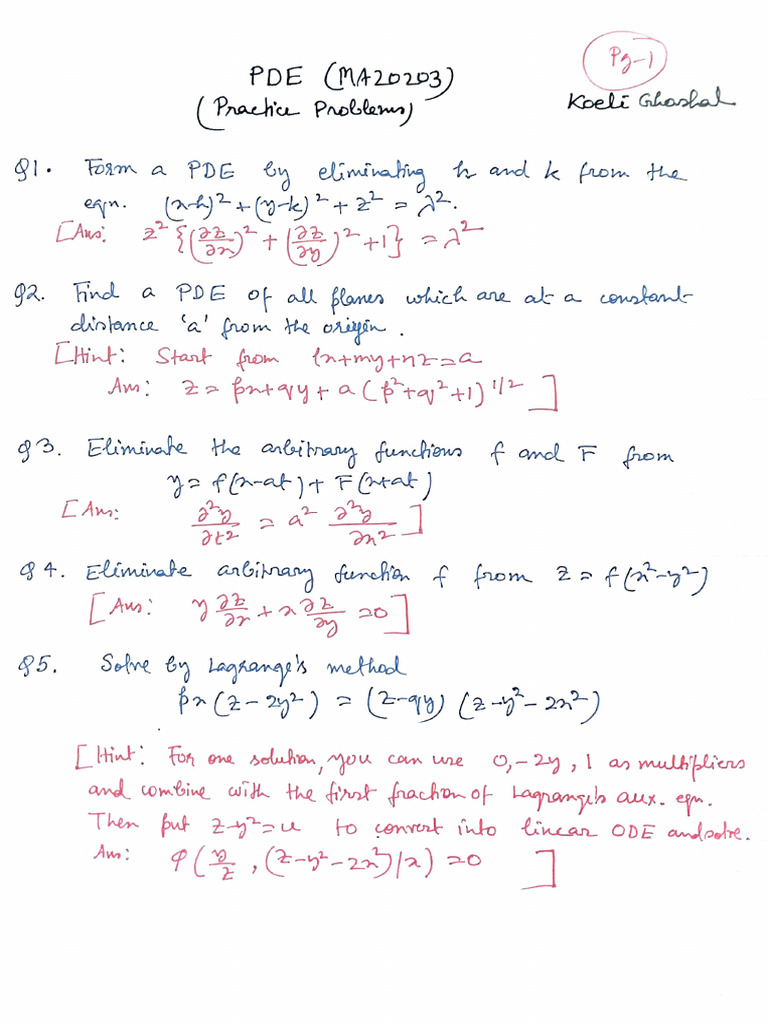 Pg-1
PDE (MA20203)
(Practice Problems)
Koeli Ghoshal
Q1. Form a PDE by eliminating h and k from the
eqn. (x-h)² + (y-k)² + z² = λ².
[Ans: z² {(∂z/∂x)² + (∂z/∂y)² + 1} = λ²
Q2. Find a PDE of all planes which are at a constant
distance 'a' from the origin.
[Hint: Start from lx+my+nz=a
Ans: z = px+qy+a(p²+q²+1)^1/2 ]
Q3. Eliminate the arbitrary functions f and F from
y = f(x-at) + F(x+at)
[Ans: ∂²y/∂t² = a² ∂²y/∂x² ]
Q4. Eliminate arbitrary function f from z = f(x²-y²)
[Ans: y ∂z/∂x + x ∂z/∂y = 0]
Q5. Solve by Lagrange's method
px(z-2y²) = (z-qy)(z-y²-2x²)
[Hint: For one solution, you can use 0, -2y, 1 as multipliers
and combine with the first fraction of Lagrange's aux. eqn.
Then put z-y²=u to convert into linear ODE and solve.
Ans: φ(y/z, (z-y²-2x²)/x) = 0 ]